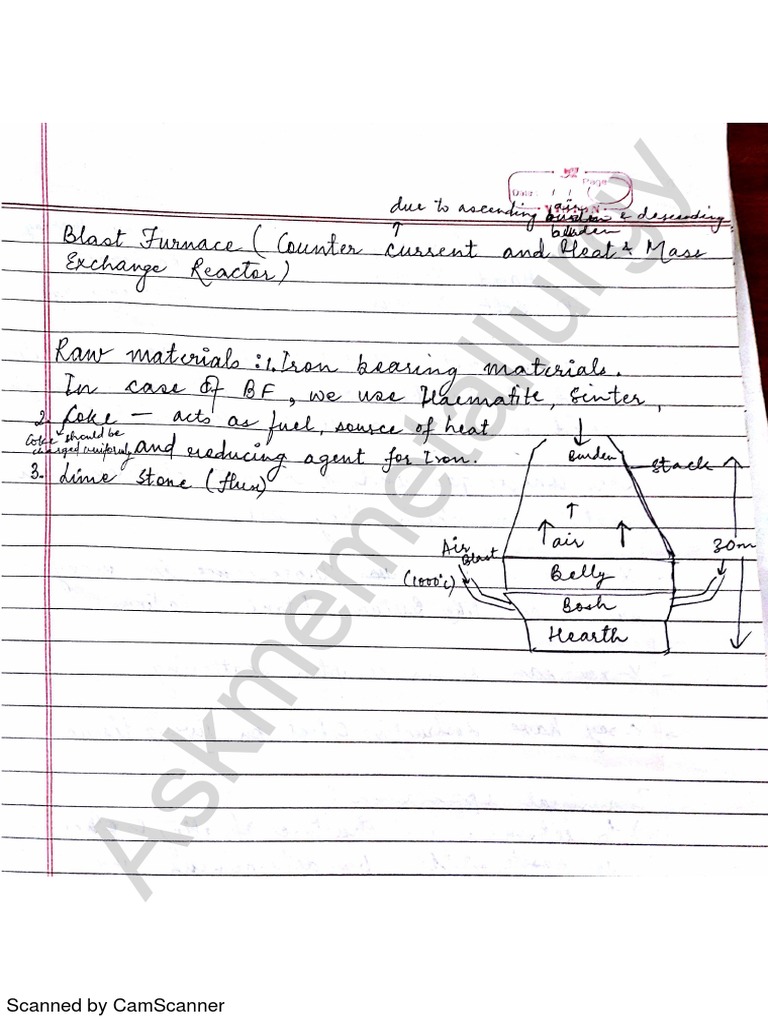 Date: / / Page
due to ascending air & descending
burden
Blast Furnace ( Counter current and Heat & Mass
Exchange Reactor)
Raw materials : 1. Iron bearing materials.
In case of BF, we use Haematite, Sinter,
2. Coke — acts as fuel, source of heat
Coke should be
charged uniformly
and reducing agent for Iron.
3. Lime Stone (flux)
Burden
Stack
air
Air
Blast
(1000°C)
30m
Belly
Bosh
Hearth
Askmemetallurgy
Scanned by CamScanner